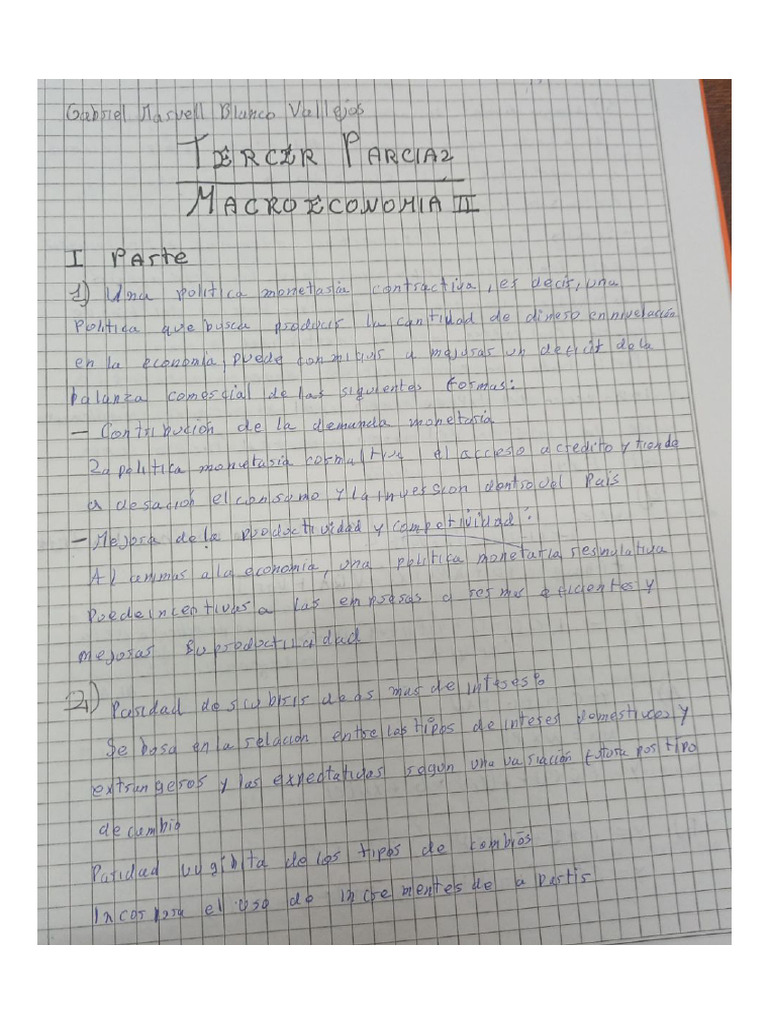 Gabriel Marvell Blanco Vallejos
TERCER PARCIAL
MACROECONOMIA II
I Parte
1) Una politica monetaria contractiva, es decir, una
Politica que busca producir la cantidad de dinero en
en la economia, puede a mejorar un deficit de la
balanza comercial de las siguientes formas:
- Contribución de la demanda monetaria
La politica monetaria el acceso a credito y tiende
a el consumo y la inversion dentro del Pais
- Mejora de la productividad y competividad:
Al a la economia, una politica monetaria
Puede a las empresas a ser mas eficientes y
mejorar su productividad
2) Paridad de mas de interes
Se basa en la relacion entre los tipos de interes domesticos y
extrangeros y las expectativas según una variación futura por tipo
de cambio
Paridad de los tipos de cambios
el uso de de a Partir